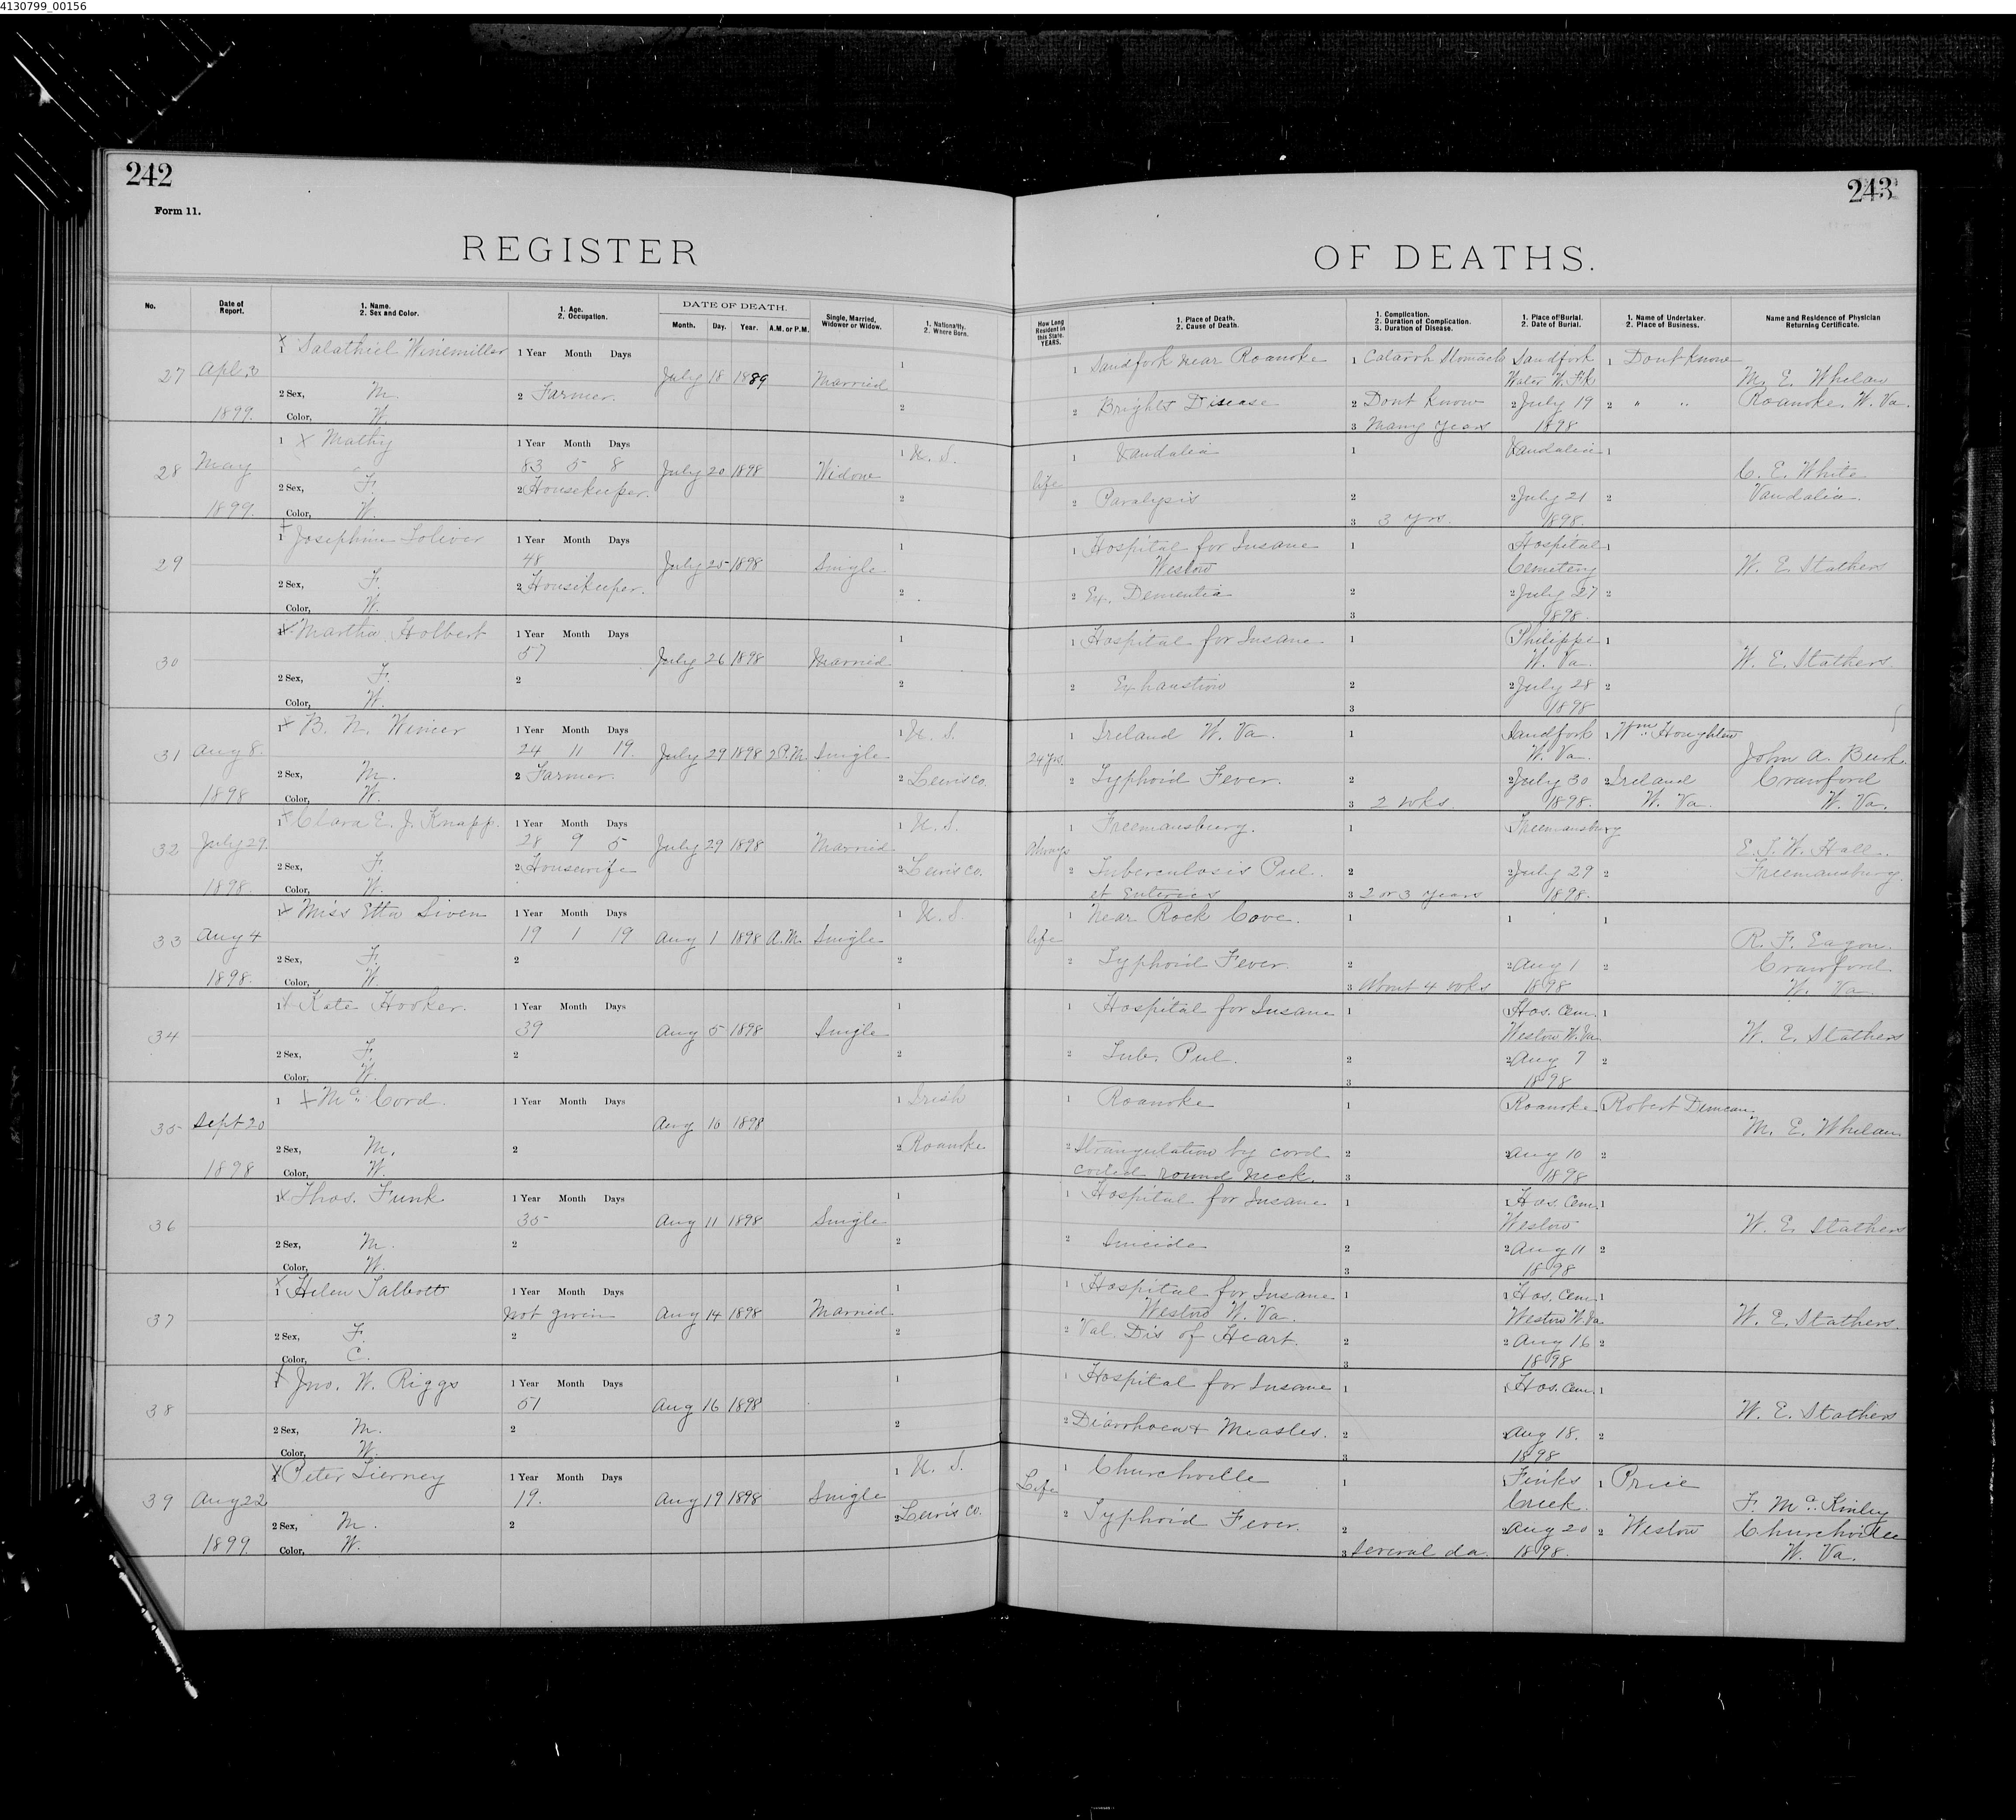 4130799_00156
242
243
Form 11.
REGISTER OF DEATHS.
No. Date of Report. 1. Name. 2. Sex and Color. 1. Age. 2. Occupation. DATE OF DEATH. Month. Day. Year. A.M. or P.M. Single, Married, Widower or Widow. 1. Nationality. 2. Where Born. How Long Resident in this State. YEARS. 1. Place of Death. 2. Cause of Death. 1. Complication. 2. Duration of Complication. 3. Duration of Disease. 1. Place of Burial. 2. Date of Burial. 1. Name of Undertaker. 2. Place of Business. Name and Residence of Physician Returning Certificate.
X 1 Salathiel Winemiller 1 Year Month Days 1 1 Sandfork near Roanoke 1 Catarrh Stomach Sandfork 1 Dont know
27 Apl. 3 July 18 1889 Married Water W. Fk M. E. Whelan
2 Sex, M. 2 Farmer. 2 2 Brights Disease 2 Dont Know 2 July 19 2 " " Roanoke. W. Va.
1899. Color, W. 3 Many years 1898
1 X Mathy 1 Year Month Days 1 U. S. 1 Vandalia 1 Vandalia 1
28 May 83 5 8 July 20 1898 Widow life C. E. White
2 Sex, F. 2 Housekeeper. 2 2 Paralysis 2 2 July 21 2 Vandalia.
1899. Color, W. 3 3 yrs. 1898.
X 1 Josephine Toliver 1 Year Month Days 1 1 Hospital for Insane 1 Hospital 1
29 48 July 25 1898 Single Weston Cemetery W. E. Stathers
2 Sex, F. 2 Housekeeper. 2 2 Ex. Dementia 2 2 July 27 2
Color, W. 3 1898.
1 X Martha Holbert 1 Year Month Days 1 1 Hospital for Insane 1 Philippi 1
30 57 July 26 1898 Married W. Va. W. E. Stathers.
2 Sex, F. 2 2 2 Exhaustion 2 2 July 28 2
Color, W. 3 1898
1 X B. N. Wimer 1 Year Month Days 1 U. S. 1 Ireland W. Va. 1 Sandfork 1 Wm. Houghlin
31 Aug 8. 24 11 19. July 29 1898 2 P.M. Single 24 yrs. W. Va. John A. Burk.
2 Sex, M. 2 Farmer. 2 Lewis Co. 2 Typhoid Fever. 2 2 July 30 2 Ireland Crawford
1898 Color, W. 3 2 wks 1898. W. Va. W. Va.
1 X Clara E. J. Knapp. 1 Year Month Days 1 U. S. 1 Freemansburg. 1 Freemansburg
32 July 29. 28 9 5 July 29 1898 Married always E. T. W. Hall.
2 Sex, F. 2 Housewife 2 Lewis Co. 2 Tuberculosis Pul. 2 2 July 29 2 Freemansburg.
1898. Color, W. et Enterics 3 2 or 3 years 1898.
1 X Miss Etta Siven 1 Year Month Days 1 U. S. 1 Near Rock Cove. 1 1 1
33 Aug 4 19 1 19 Aug 1 1898 A.M. Single life R. F. Eagon.
2 Sex, F. 2 2 2 Typhoid Fever. 2 2 Aug 1 2 Crawford
1898. Color, W. 3 About 4 wks 1898 W. Va.
1 X Kate Hooker. 1 Year Month Days 1 1 Hospital for Insane 1 Hos. Cem. 1
34 39 Aug 5 1898 Single Weston W. Va. W. E. Stathers
2 Sex, F. 2 2 2 Tub. Pul. 2 2 Aug 7 2
Color, W. 3 1898
1 X Mc. Cord. 1 Year Month Days 1 Irish 1 Roanoke 1 Roanoke Robert Duncan
35 Sept 20 Aug 10 1898 M. E. Whelan
2 Sex, M. 2 2 Roanoke 2 Strangulation by cord 2 2 Aug 10 2
1898 Color, W. coiled round neck. 3 1898
1 X Thos. Funk 1 Year Month Days 1 1 Hospital for Insane 1 1 Hos. Cem. 1
36 35 Aug 11 1898 Single Weston W. E. Stathers
2 Sex, M. 2 2 2 Suicide 2 2 Aug 11 2
Color, W. 3 1898
X 1 Helen Talbott 1 Year Month Days 1 1 Hospital for Insane 1 1 Hos. Cem. 1
37 Not given Aug 14 1898 Married Weston W. Va. Weston W. Va. W. E. Stathers.
2 Sex, F. 2 2 2 Val. Dis of Heart. 2 2 Aug 16 2
Color, C. 3 1898
X 1 Jno. W. Riggs 1 Year Month Days 1 1 Hospital for Insane 1 1 Hos. Cem. 1
38 51 Aug 16 1898 W. E. Stathers
2 Sex, M. 2 2 2 Diarrhoea & Measles. 2 2 Aug 18. 2
Color, W. 3 1898
X 1 Peter Tierney 1 Year Month Days 1 U. S. 1 Churchville 1 Finks 1 Price
39 Aug 22 19. Aug 19 1898 Single Life Creek. F. Mc. Kinley
2 Sex, M. 2 2 Lewis Co. 2 Typhoid Fever. 2 2 Aug 20 2 Weston Churchville
1899. Color, W. 3 Several da. 1898. W. Va.